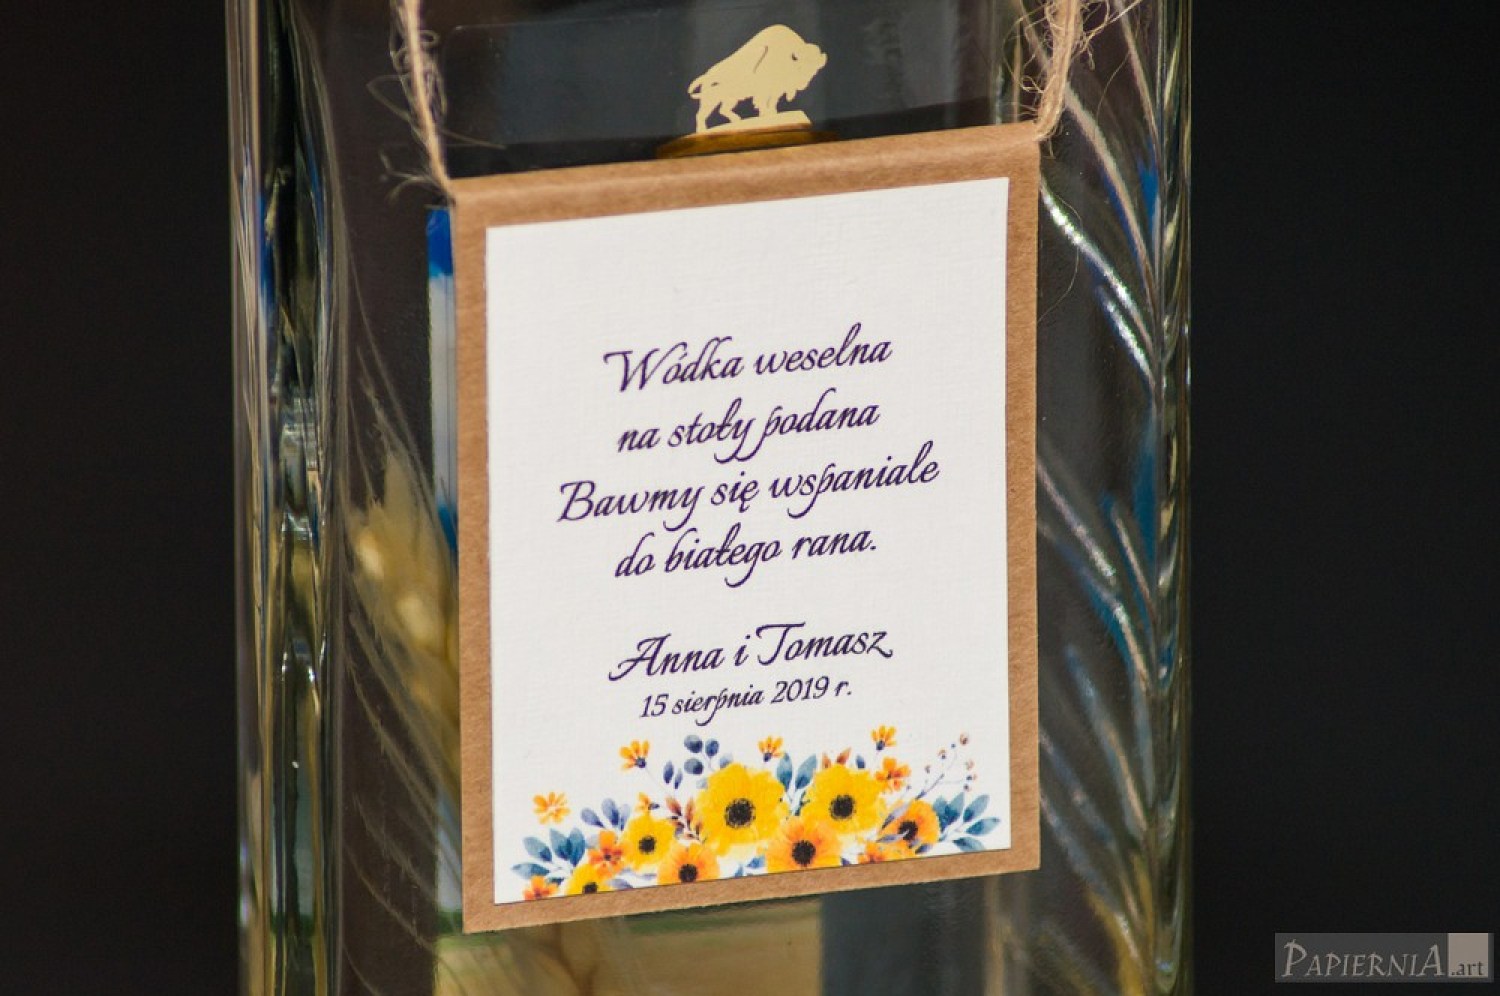 Wódka weselna
na stoły podana
Bawmy się wspaniale
do białego rana.
Anna i Tomasz
15 sierpnia 2019 r.
PAPIERNIA.art